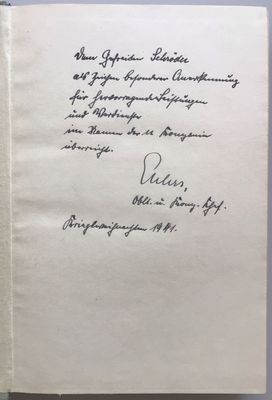 Dem Gefreiten Schröder
als Zeichen besonderer Anerkennung
für hervorragende Leistungen
und Verdienste
im Namen der Kompanie
überreicht.
Oblt. u. Komp. Chef.
Kriegsweihnachten 1941.